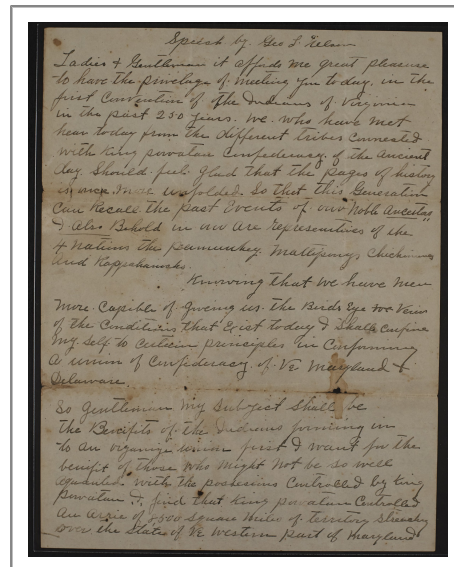 Speech by. Geo L. Nelson
Ladies & Gentleman it affids me great pleasure
to have the privelage of meeting you today, in the
first Convention of the Indians of Virginia
in the past 250 years. We. who have met
hear today from the different tribes connected
with King powatan confederacy, of the ancient
day. Should feel glad that the pages of history
is once more unfolded. So that this Generation
Can Recall the past Events of our Noble Ancestors
I also Behold in our are Representives of the
4 Nations the pamunkey. Mattaponys
And Rapahanocks.
Knowing that we have men
More. Capible of giveing us. the Birds Eye View
of the Conditions that Exist today I Shall confine
My Self to certain principles in Conforming
a union of Confederacy. of Va Maryland &
Delaware.
So gentleman my Subject Shall be
the Benifits of the Indians joining in
to an union first I want for the
benifit of those who might not be so well
aquainted. With the possesions Controlled by King
Powatan I find that King powatan Controlled
An area of 8000 Square miles of territory
over the State of Va Western part of Maryland